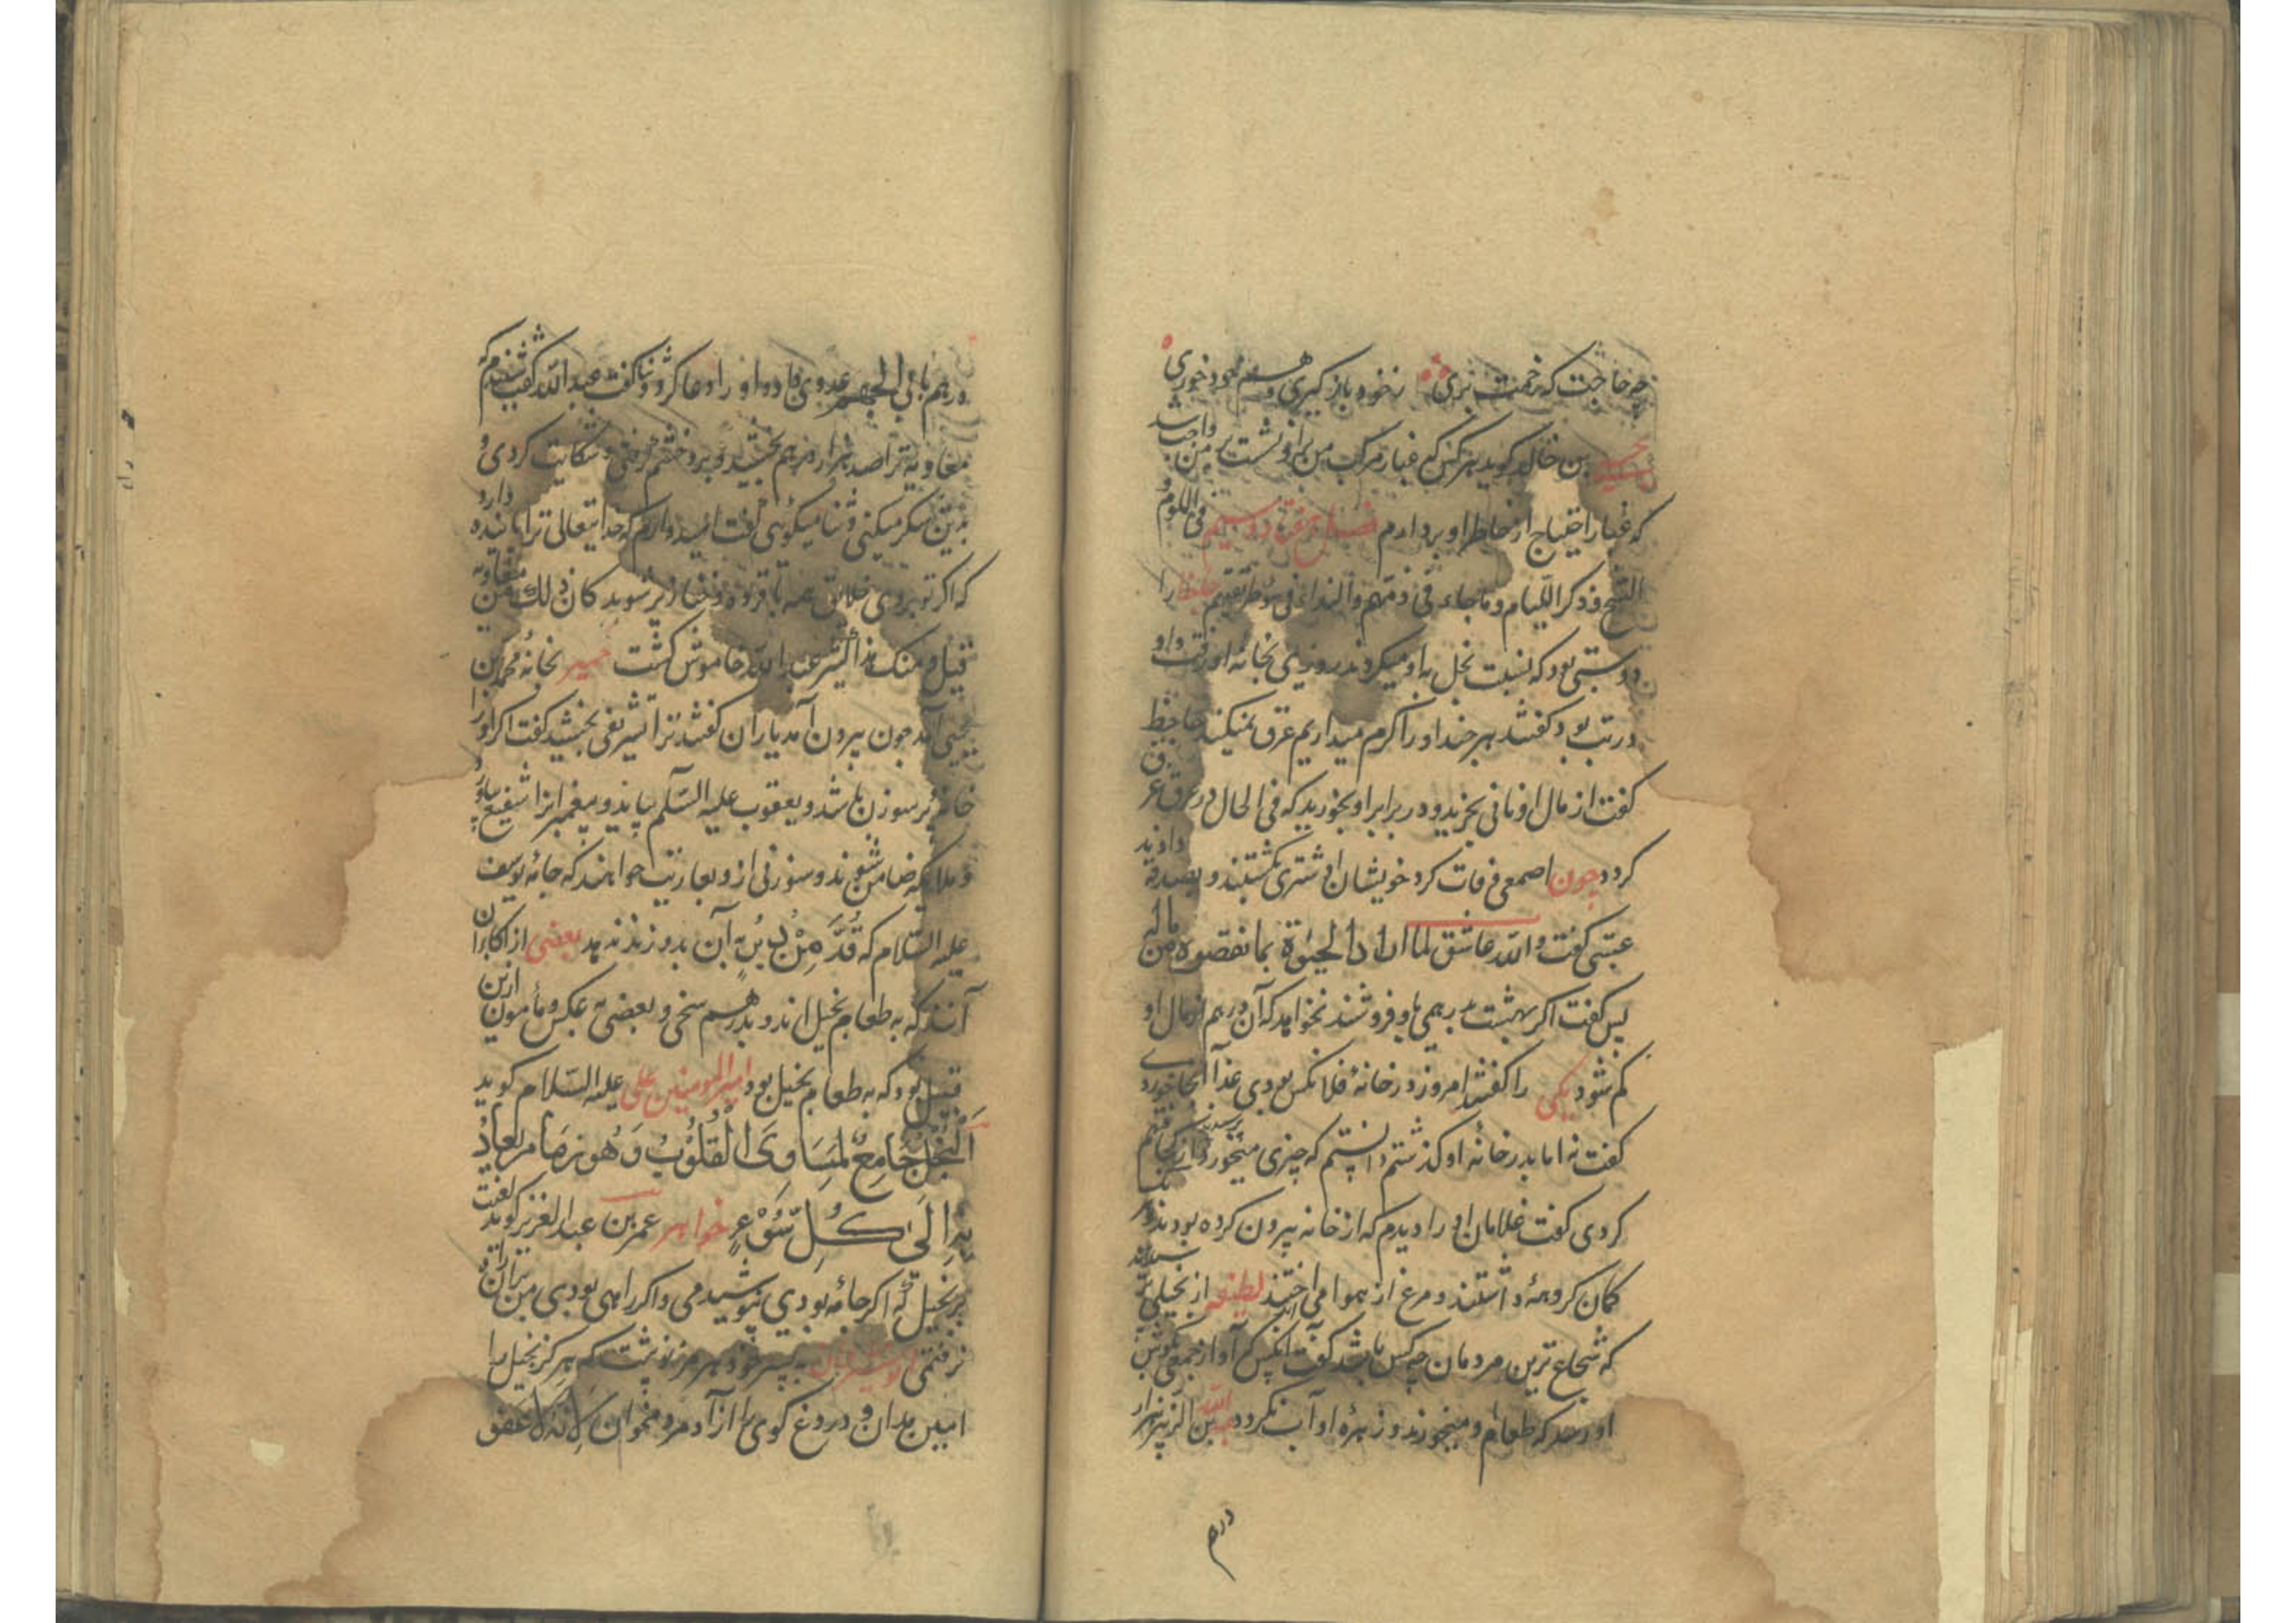 چه حاجت که زحمت بری ز خود بازگیری و هم خود خوری
بن خالد کوید هر کس که غبار مرکب من برو نشست بر من واجب شد
که غبار احتیاج از خاطر او بردارم فصل هفتاد و سیم فی اللوم و
الشح و ذکر اللیام و ما جاء فی ذمهم و النداء فی سوء طریقتهم جاحظ را
دوستی بود که نسبت بخل به او میکردند روزی بخانه او رفت و او
در تب بود گفتند هر چند او را گرم میداریم عرق نمیکند جاحظ
گفت از مال او نانی بخرید و در برابر او بخورید که فی الحال در عرق غرق
کردد چون اصمعی وفات کرد خویشان او شتری بکشتند و بصدقه دادند
عتبی گفت والله عاشق لما اراد الحیوة بما نقصوه من ماله
پس گفت اگر بهشت بدرهمی باو فروشند نخواهد که آن درهم از مال او
کم شود یکی را گفتند امروز در خانهٔ فلانکس بودی غذا آنجا خوردی
گفت نه اما بدر خانه او گذشتم دانستم که چیزی میخورد پرسیدند از کجا فهم
کردی گفت غلامان او را دیدم که از خانه بیرون کرده بودند و
کمان کروهه داشتند و مرغ از هوا می انداختند لطیفه از بخیلی پرسیدند
که شجاع ترین مردمان چه کس باشد گفت آنکس که آواز جمعی بگوش
او رسد که طعام او میخورند و زهره او آب نکردد عبدالله بن الزبیر هزار
درهم
درهم بابی الجهم عدوی داد و او را دعا کرد و ثنا گفت عبدالله گفت شنیدم که
معاویه ترا صد هزار درهم بخشید و برو خشم گرفتی و شکایت کردی و
بدین شکر میکنی و ثنا میکوئی گفت امیدوارم که خدایتعالی ترا پاینده دارد
که اگر تو بروی خلایق همه تا قرده و خنازیر شوند کان ذلک من معاویه
قلیل و منک هذا کثیر عبدالله خاموش گشت خمیر بخانه محمد بن
یحیی آمد چون بیرون آمد یاران گفتند ترا تشریفی بخشید گفت اگر او را
خانه پر سوزن باشد و یعقوب علیه السلم بیاید و پیغمبرانرا شفیع بیاورد
و ملایکه ضامن شوند و سوزنی از او بعاریت خواهند که جامه یوسف
علیه السلام که قُدَّ مِنْ دُبُرٍ به آن بدوزند ندهد بعضی از اکابر
آنند که به طعام بخیل اند و بدرهم سخی و بعضی به عکس و مأمون ازین
قبیل بود که به طعام بخیل بود امیرالمومنین علی علیه السلام کوید
اَلْبُخْلُ جَامِعٌ لِمَسَاوِی الْقُلُوْبِ وَ هُو زِمَام یُقادُ
بِهِ اِلَی کُلِّ سُوْءٍ خواهر عمر بن عبدالعزیز کوید لعنت
بر بخیل که اگر جامه بودی نپوشیدمی و اگر راهی بودی من بران راه
نرفتمی نوشیروان به پسر خود هرمز نوشت که هرگز بخیل را
امین مدان و دروغ گوی را از آدمی مخوان لانه لا عفة